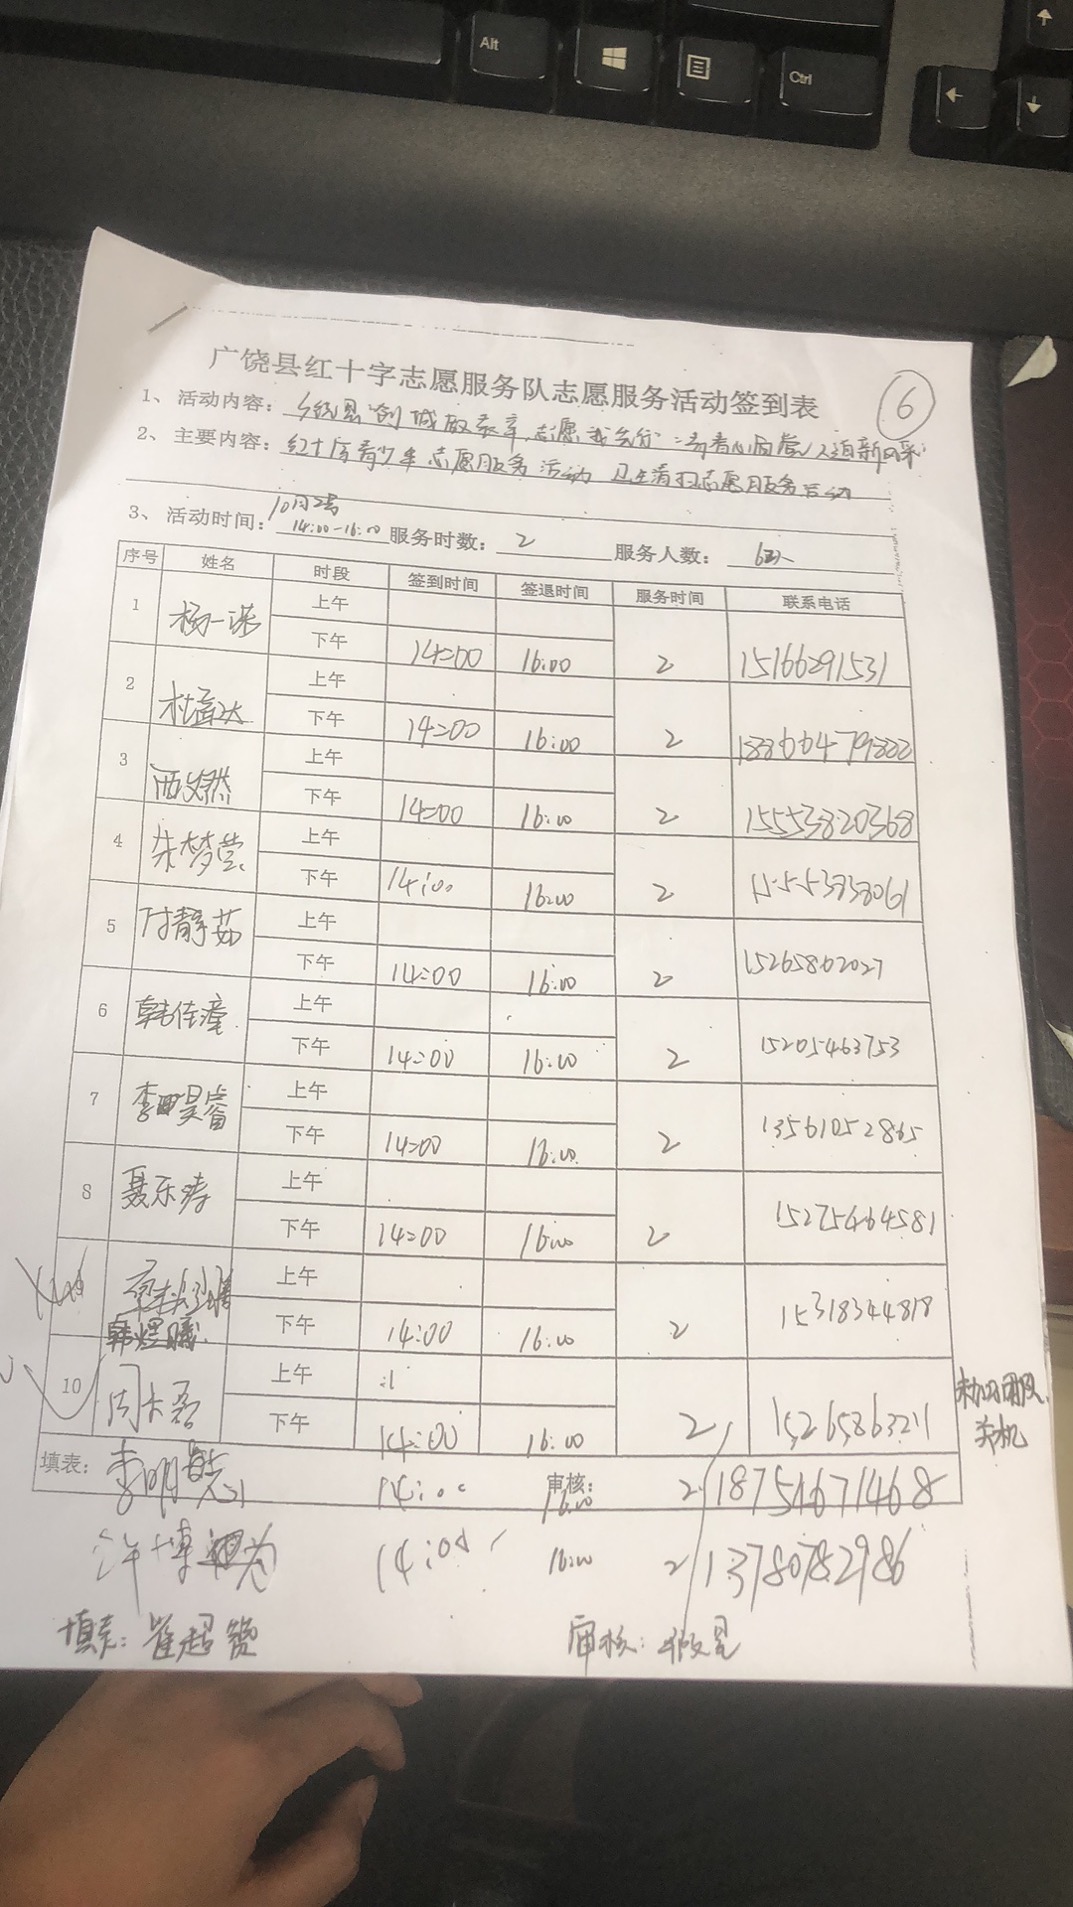 Alt
Ctrl
广饶县红十字志愿服务队志愿服务活动签到表
6
1、活动内容：创城 志愿我先行
2、主要内容：红十字青少年志愿服务活动 卫生清扫志愿服务活动
10月2号
3、活动时间：14:00-16:00 服务时数：2 服务人数：
序号 姓名 时段 签到时间 签退时间 服务时间 联系电话
1 杨一 上午
下午 14:00 16:00 2 15166291531
2 杜 上午
下午 14:00 16:00 2
3 西 然 上午
下午 14:00 16:00 2 15553820368
4 朱梦莹 上午
下午 14:00 16:00 2 15553838061
5 付静茹 上午
下午 14:00 16:00 2 15265862027
6 韩佳潼 上午
下午 14:00 16:00 2 15205463753
7 李昊睿 上午
下午 14:00 16:00 2 13561052865
8 聂乐涛 上午
下午 14:00 16:00 2 15275464581
上午
韩煜曦 下午 14:00 16:00 2 15318344818
10 周 上午
下午 14:00 16:00 2 15265863211
未加入团队
关机
填表： 审核：
李明 14:00 16:00 2 18751671468
许博 14:00 16:00 2 13780782986
填表：崔超 审核：